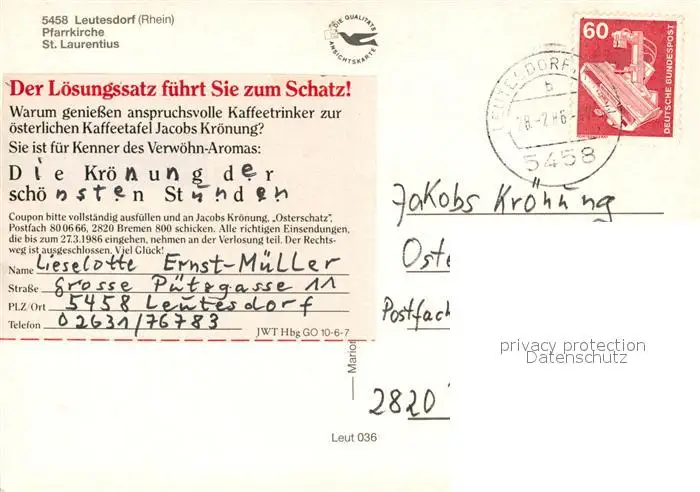 5458 Leutesdorf (Rhein)
Pfarrkirche
St. Laurentius
DIE QUALITÄTS
ANSICHTSKARTE
60
DEUTSCHE BUNDESPOST
LEUTESDORF
b
5458
Der Lösungssatz führt Sie zum Schatz!
Warum genießen anspruchsvolle Kaffeetrinker zur
österlichen Kaffeetafel Jacobs Krönung?
Sie ist für Kenner des Verwöhn-Aromas:
Die Krönung der
schönsten Stunden
Coupon bitte vollständig ausfüllen und an Jacobs Krönung, „Osterschatz“,
Postfach 80 06 66, 2820 Bremen 800 schicken. Alle richtigen Einsendungen,
die bis zum 27.3.1986 eingehen, nehmen an der Verlosung teil. Der Rechts-
weg ist ausgeschlossen. Viel Glück!
Name Lieselotte Ernst-Müller
Straße Grosse Pützgasse 11
PLZ/Ort 5458 Leutesdorf
Telefon 02631/76783
JWT Hbg GO 10-6-7
Jakobs Krönung
Oste
Postfach
2820
privacy protection
Datenschutz
Marion
Leut 036